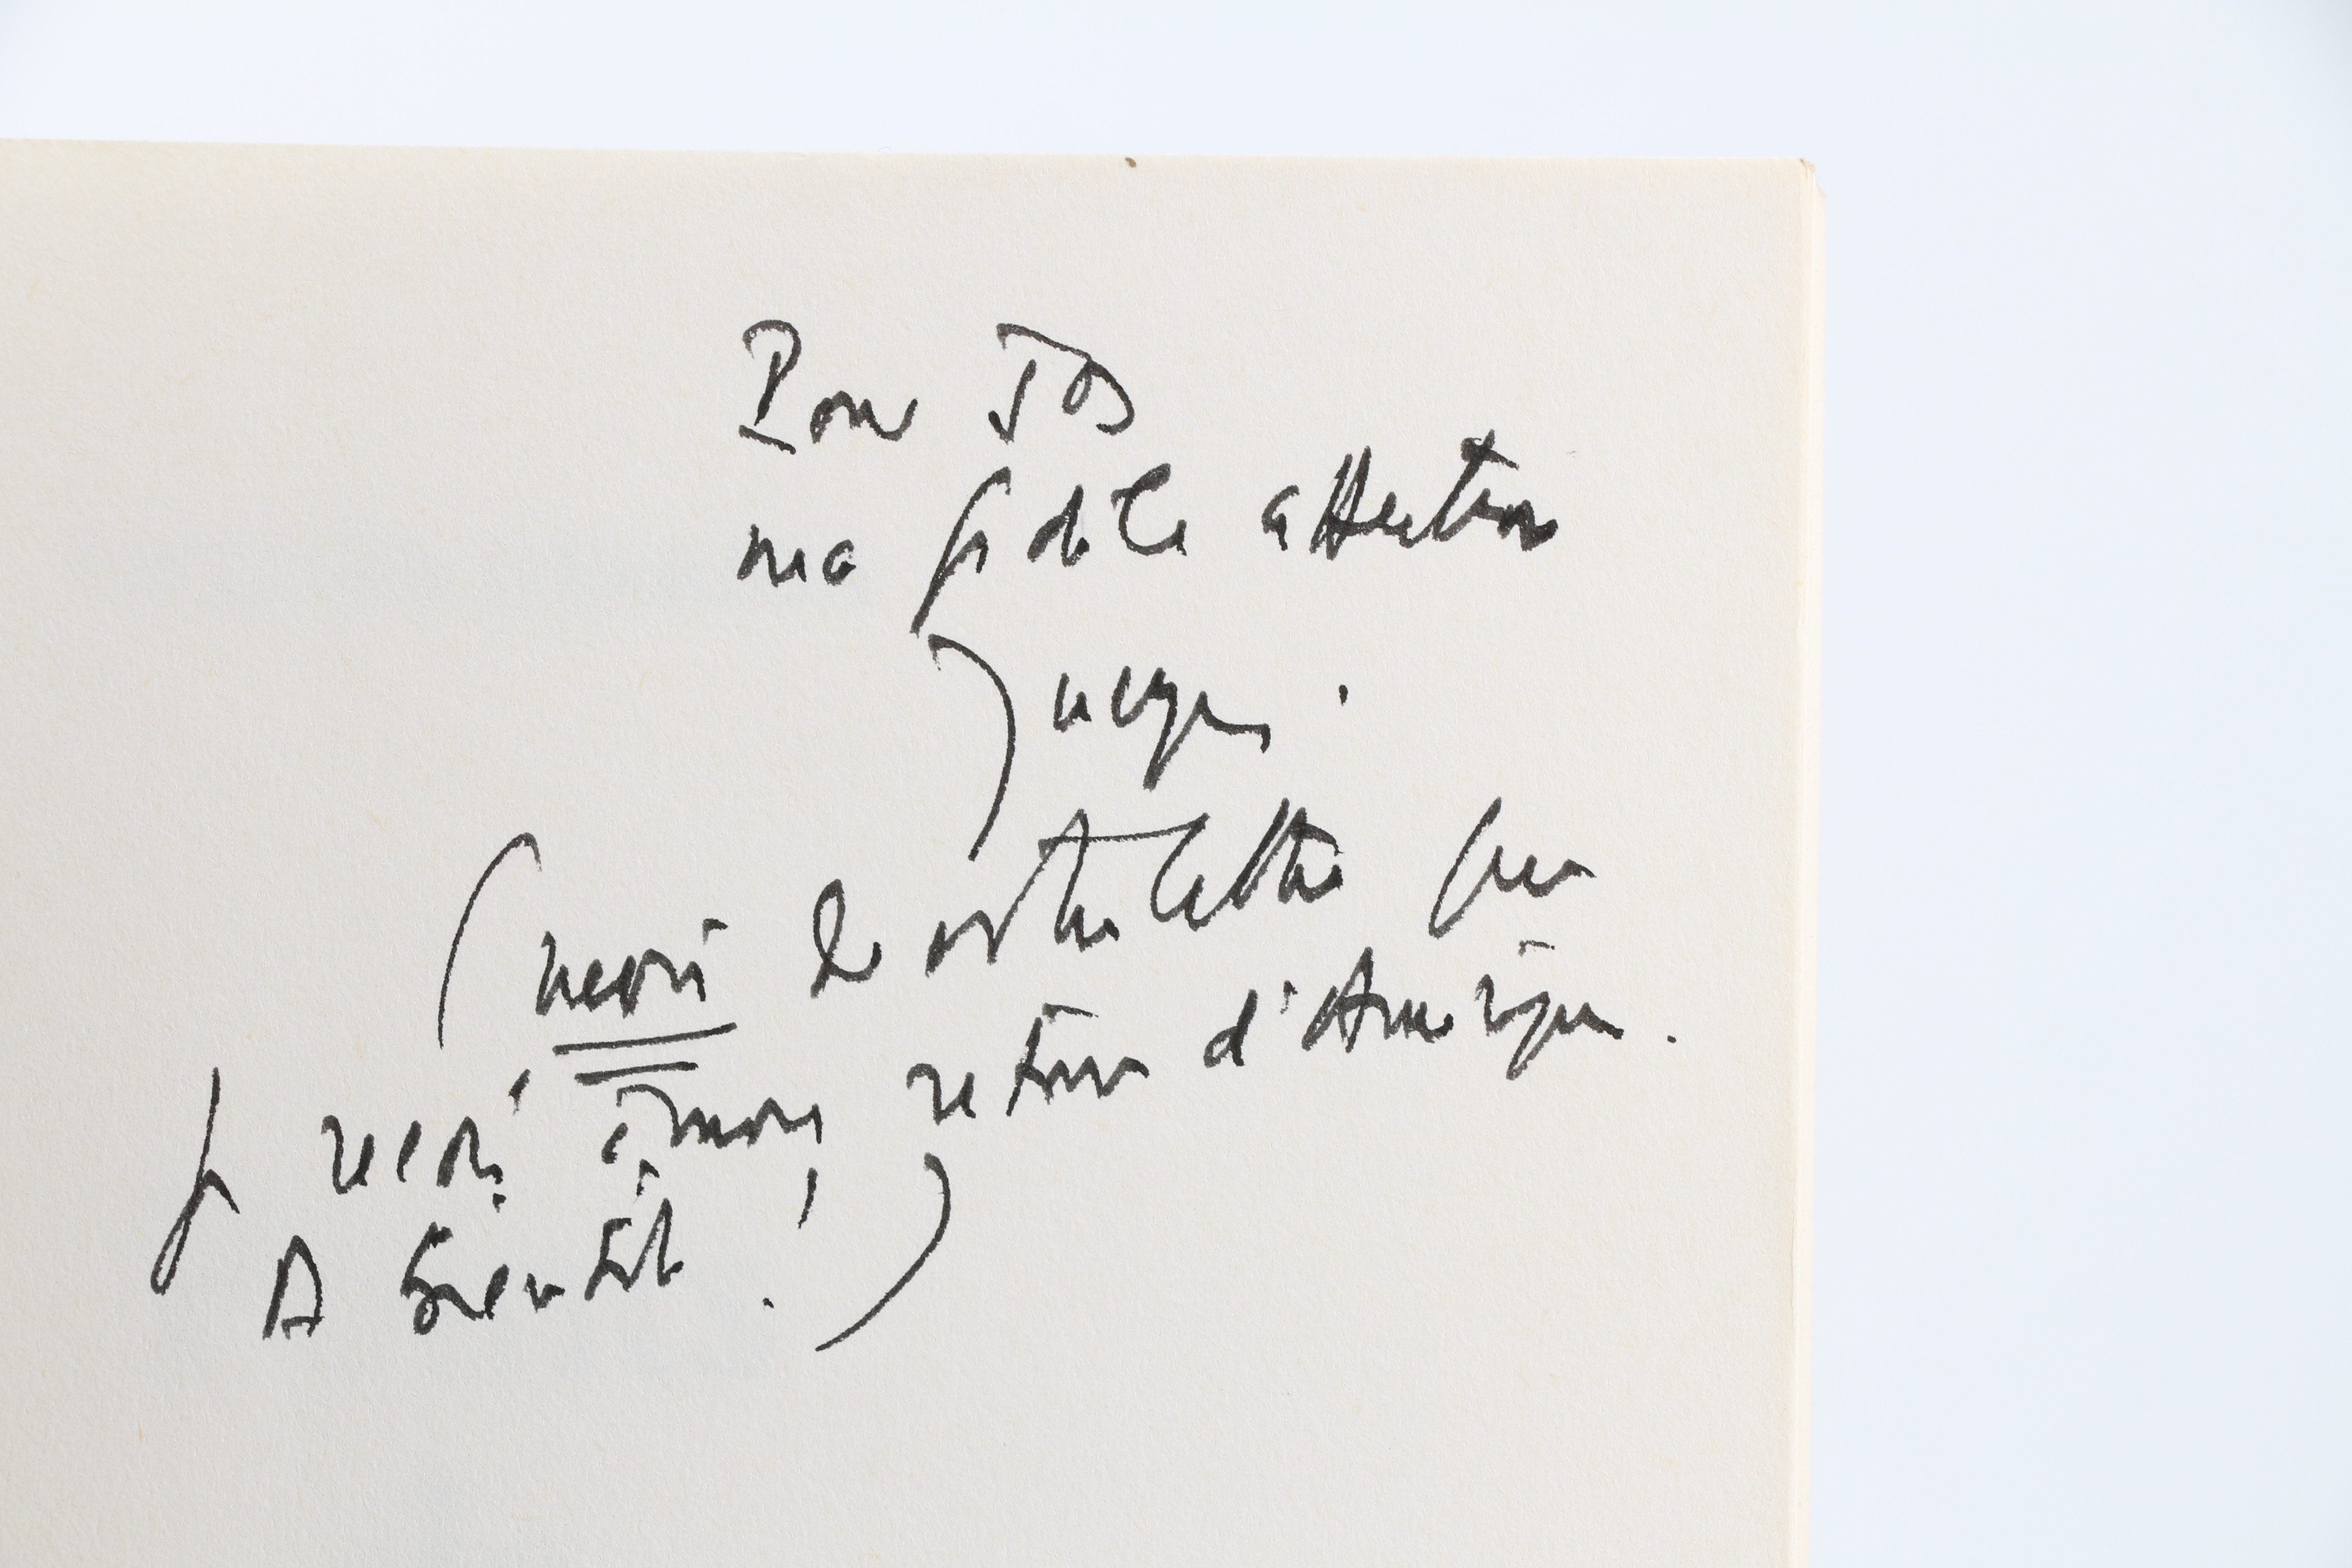 Pour Jos
ma fidèle affection
Jacques.
(merci de votre lettre que
je reçois à mon retour d'Amérique.
A bientôt !)